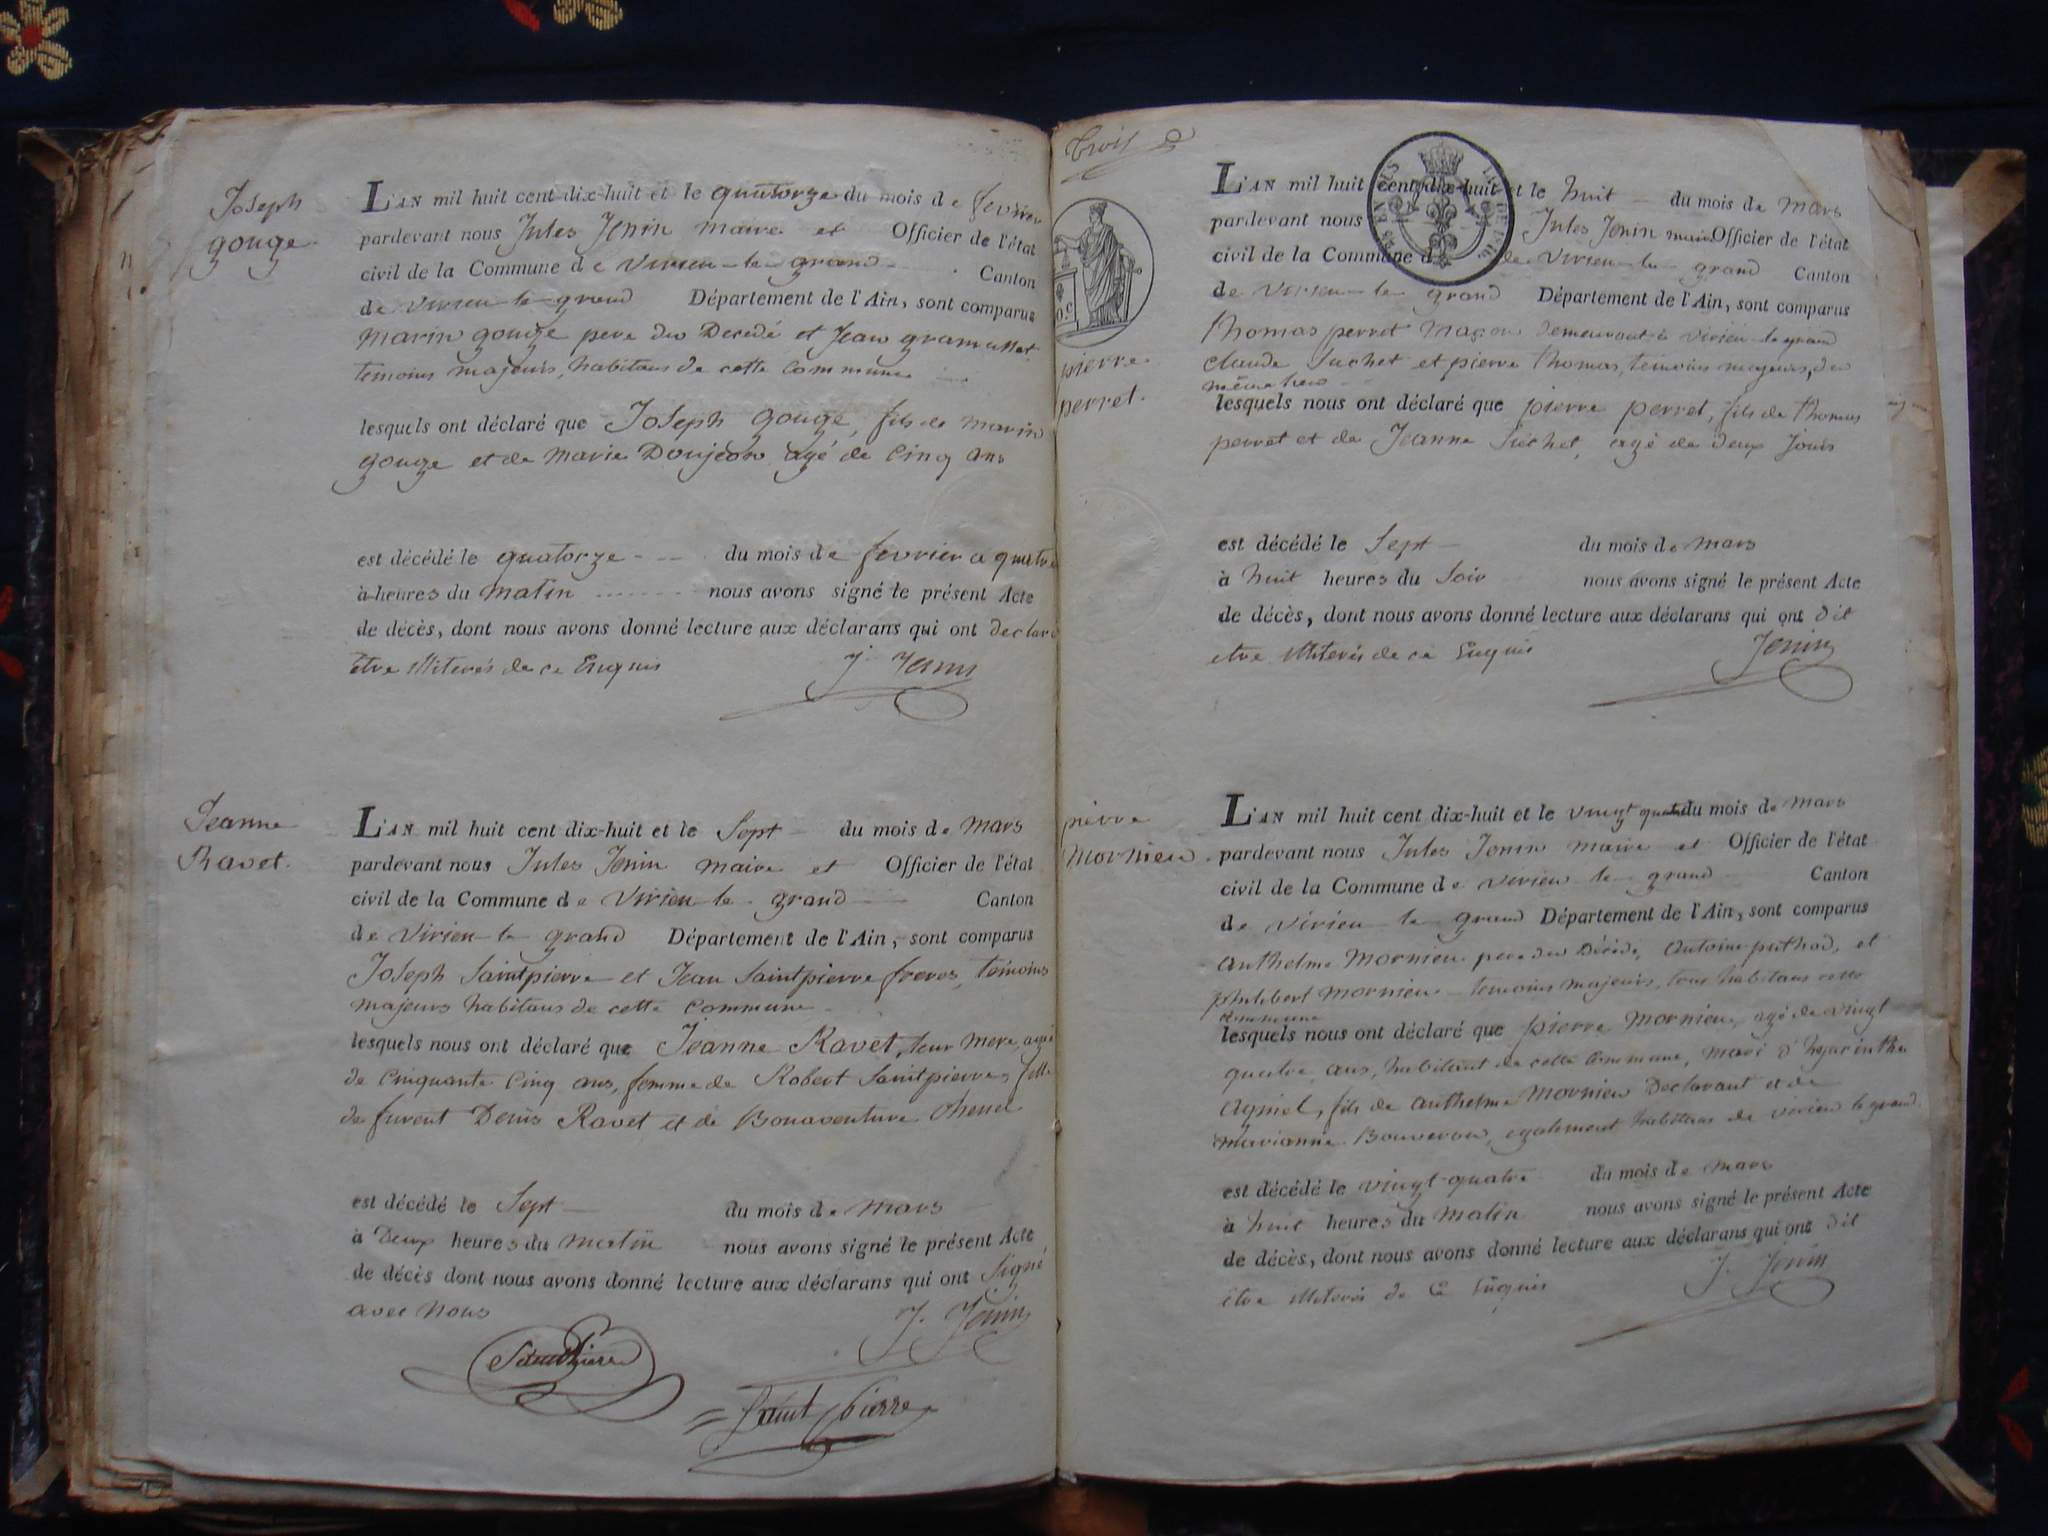 Joseph
gouge
L'AN mil huit cent dix-huit et le quatorze du mois de fevrier
pardevant nous Jules Jenin maire et Officier de l'état
civil de la Commune de virieu-le-grand Canton
de virieu-le-grand Département de l'Ain, sont comparus
marin gouge pere du Decedé et Jean
temoins majeurs, habitans de cette commune
lesquels ont déclaré que Joseph gouge, fils de marin
gouge et de marie Donjeon agé de cinq ans
est décédé le quatorze du mois de fevrier a quatre
à heures du matin nous avons signé le présent Acte
de décès, dont nous avons donné lecture aux déclarans qui ont declaré
être illiterés de ce Enquis J. Jenin
Jeanne
Ravet.
L'AN mil huit cent dix-huit et le Sept du mois de mars
pardevant nous Jules Jenin maire et Officier de l'état
civil de la Commune de virieu-le-grand Canton
de virieu-le grand Département de l'Ain, sont comparus
Joseph Saintpierre et Jean Saintpierre freres, temoins
majeurs habitans de cette commune
lesquels nous ont déclaré que Jeanne Ravet, leur mere, agée
de cinquante cinq ans, femme de Robert Saintpierre, fille
de furent Denis Ravet et de Bonaventure
est décédé le Sept du mois de mars
à Deux heures du matin nous avons signé le présent Acte
de décès dont nous avons donné lecture aux déclarans qui ont Signé
avec nous J. Jenin
SaintPierre
Saint pierre
trois
pierre
perret.
L'AN mil huit cent dix-huit et le huit du mois de mars
pardevant nous Jules Jenin maire Officier de l'état
civil de la Commune de virieu-le grand Canton
de virieu-le grand Département de l'Ain, sont comparus
thomas perret maçon demeurant à virieu-le-grand
claude Suchet et pierre thomas, temoins majeurs, du
même lieu
lesquels nous ont déclaré que pierre perret, fils de thomas
perret et de Jeanne Suchet, agé de deux jours
est décédé le Sept du mois de mars
à huit heures du Soir nous avons signé le présent Acte
de décès, dont nous avons donné lecture aux déclarans qui ont dit
etre illiterés de ce Enquis Jenin
pierre
mornieu
L'AN mil huit cent dix-huit et le vingt quatre du mois de mars
pardevant nous Jules Jenin maire et Officier de l'état
civil de la Commune de virieu le grand Canton
de virieu le grand Département de l'Ain, sont comparus
anthelme mornieu pere du Décédé, antoine puthod, et
philibert mornieu temoins majeurs, tous habitans cette
commune
lesquels nous ont déclaré que pierre mornieu, agé de vingt
quatre ans, habitant de cette commune, mari d'hyacinthe
fils de anthelme mornieu Declarant et de
marianne également habitans de virieu le grand
est décédé le vingt-quatre du mois de mars
à huit heures du matin nous avons signé le présent Acte
de décès, dont nous avons donné lecture aux déclarans qui ont dit
être illiterés de ce Enquis J. Jenin